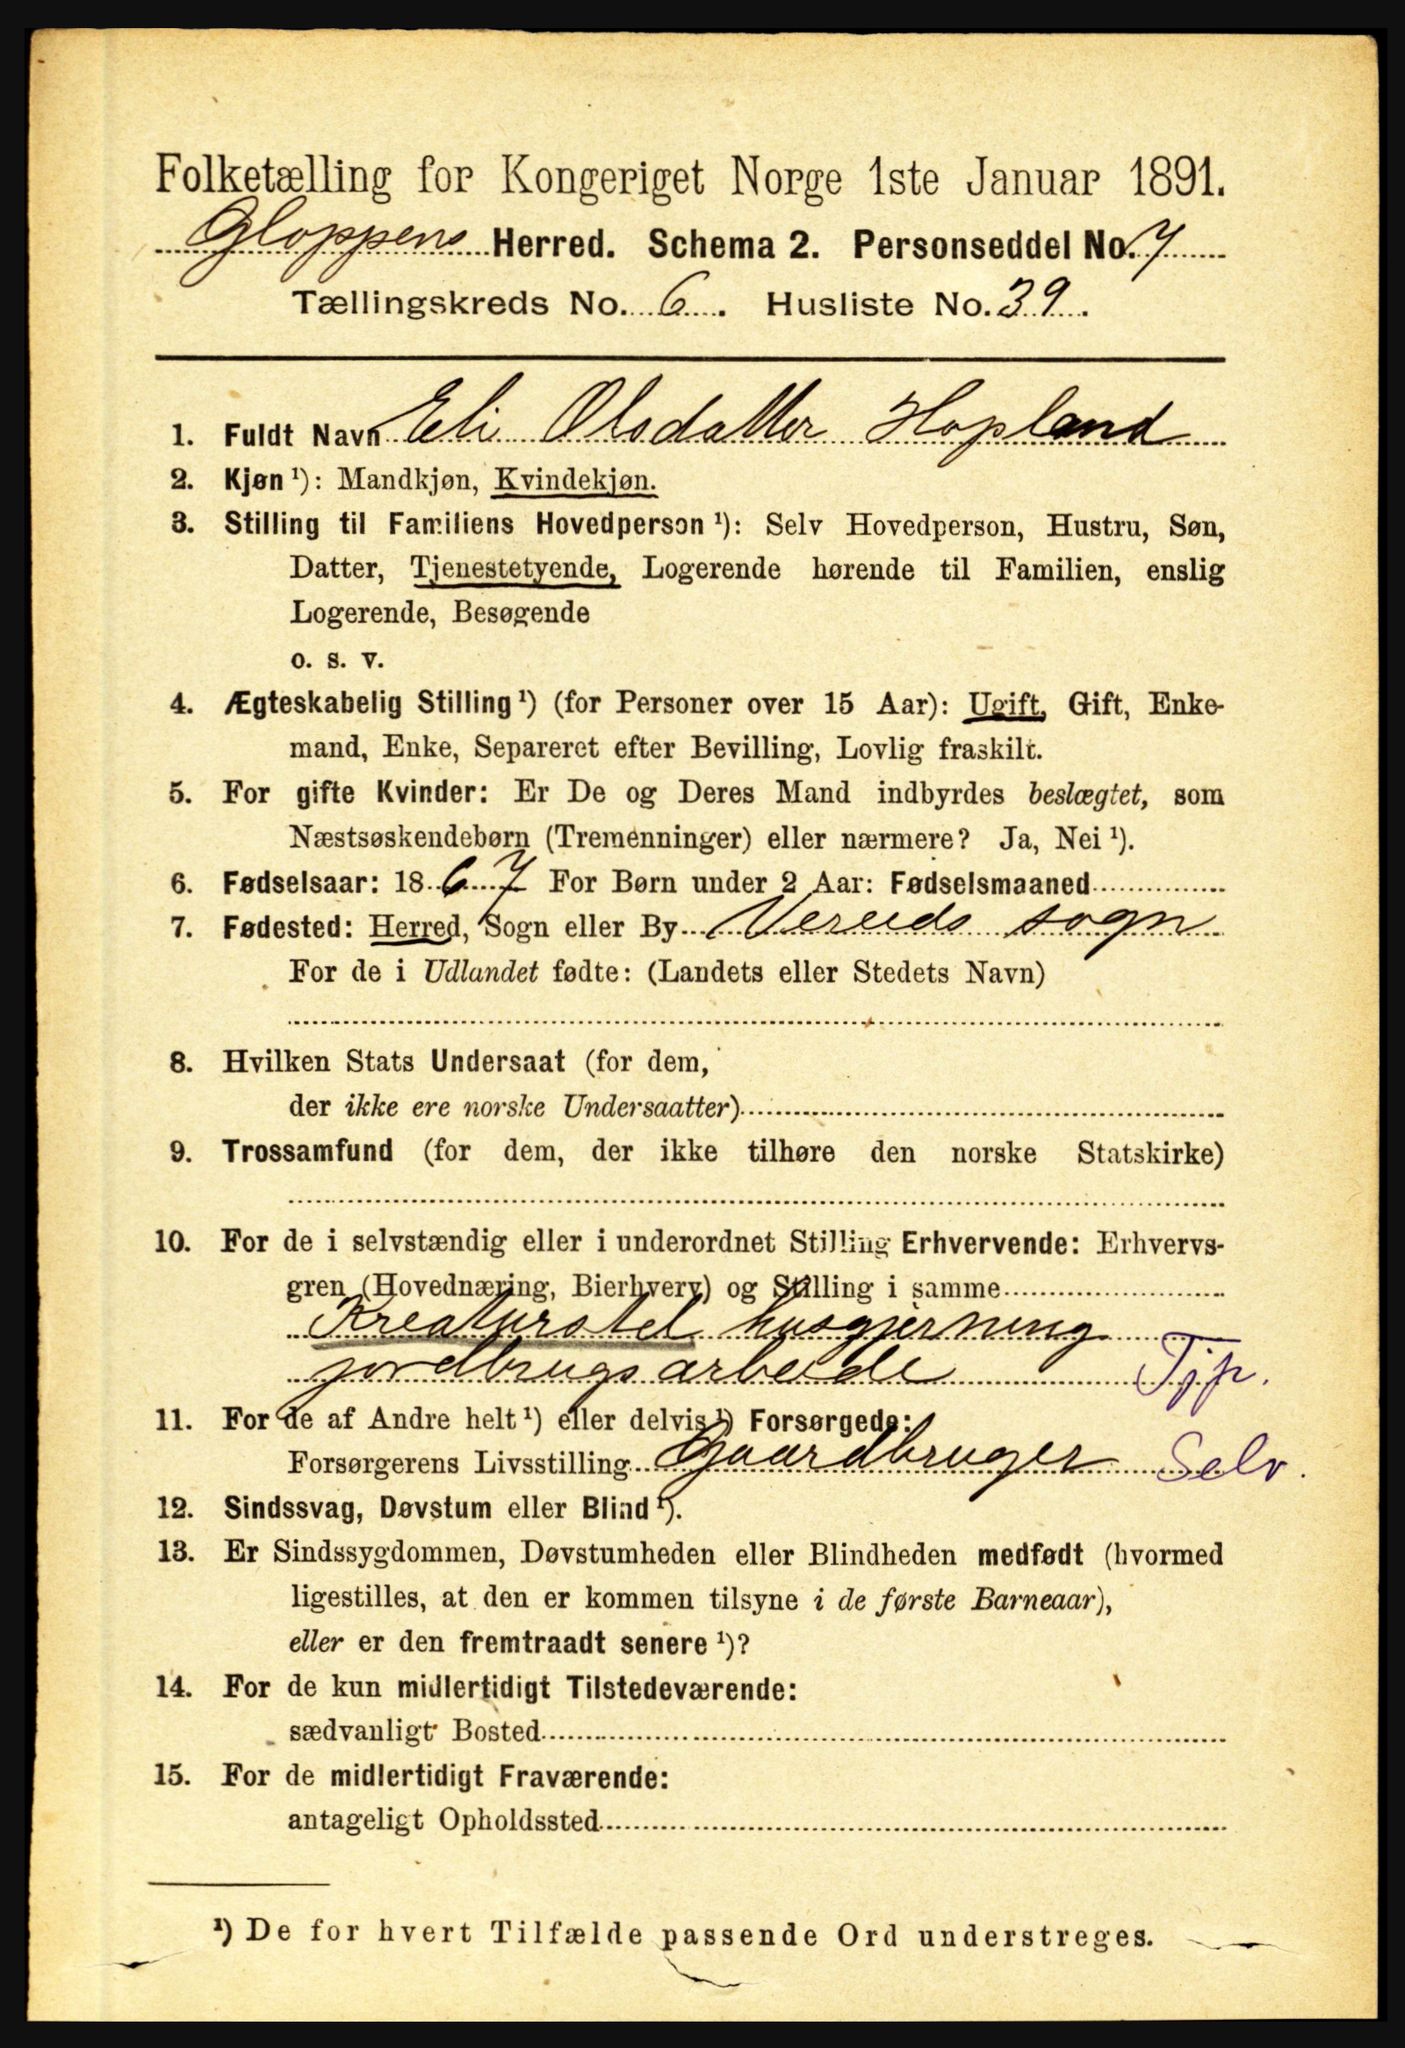 Folketælling for Kongeriget Norge 1ste Januar 1891.
Gloppens Herred. Schema 2. Personseddel No. 7
Tællingskreds No. 6. Husliste No. 39.
1. Fuldt Navn Eli Olsdatter Hopland
2. Kjøn ¹): Mandkjøn, Kvindekjøn.
3. Stilling til Familiens Hovedperson ¹): Selv Hovedperson, Hustru, Søn,
Datter, Tjenestetyende, Logerende hørende til Familien, enslig
Logerende, Besøgende
o. s. v.
4. Ægteskabelig Stilling ¹) (for Personer over 15 Aar): Ugift, Gift, Enke-
mand, Enke, Separeret efter Bevilling, Lovlig fraskilt.
5. For gifte Kvinder: Er De og Deres Mand indbyrdes beslægtet, som
Næstsøskendebørn (Tremenninger) eller nærmere? Ja, Nei ¹).
6. Fødselsaar: 1867 For Børn under 2 Aar: Fødselsmaaned
7. Fødested: Herred, Sogn eller By Vereids sogn
For de i Udlandet fødte: (Landets eller Stedets Navn)
8. Hvilken Stats Undersaat (for dem,
der ikke ere norske Undersaatter)
9. Trossamfund (for dem, der ikke tilhøre den norske Statskirke)
10. For de i selvstændig eller i underordnet Stilling Erhvervende: Erhvervs-
gren (Hovednæring, Bierhverv) og Stilling i samme
Kreaturstel husgjerning
jordbrugsarbeide Tjp.
11. For de af Andre helt ¹) eller delvis ¹) Forsørgede:
Forsørgerens Livsstilling Gaardbruger Selv.
12. Sindssvag, Døvstum eller Blind ¹).
13. Er Sindssygdommen, Døvstumheden eller Blindheden medfødt (hvormed
ligestilles, at den er kommen tilsyne i de første Barneaar),
eller er den fremtraadt senere ¹)?
14. For de kun midlertidigt Tilstedeværende:
sædvanligt Bosted
15. For de midlertidigt Fraværende:
antageligt Opholdssted
¹) De for hvert Tilfælde passende Ord understreges.